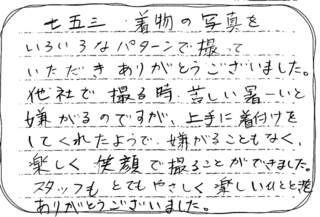 七五三 着物の写真を
いろいろなパターンで撮って
いただきありがとうございました。
他社で撮る時、苦しい暑ーいと
嫌がるのですが、上手に着付けを
してくれたようで、嫌がることもなく、
楽しく笑顔で撮ることができました。
スタッフもとてもやさしく楽しいひとと
ありがとうございいました。